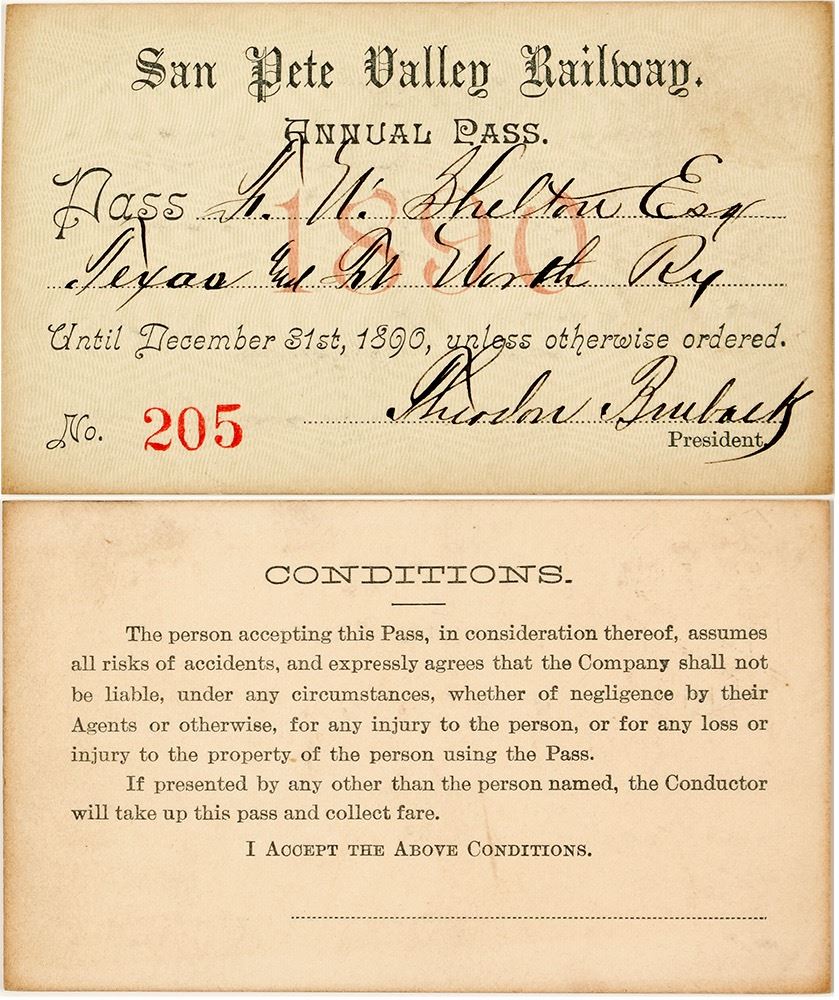 San Pete Valley Railway.
ANNUAL PASS.
1890
Pass W. Shelton Esq
Texas Ft Worth Ry
Until December 31st, 1890, unless otherwise ordered.
No. 205
President.
CONDITIONS.
The person accepting this Pass, in consideration thereof, assumes
all risks of accidents, and expressly agrees that the Company shall not
be liable, under any circumstances, whether of negligence by their
Agents or otherwise, for any injury to the person, or for any loss or
injury to the property of the person using the Pass.
If presented by any other than the person named, the Conductor
will take up this pass and collect fare.
I ACCEPT THE ABOVE CONDITIONS.